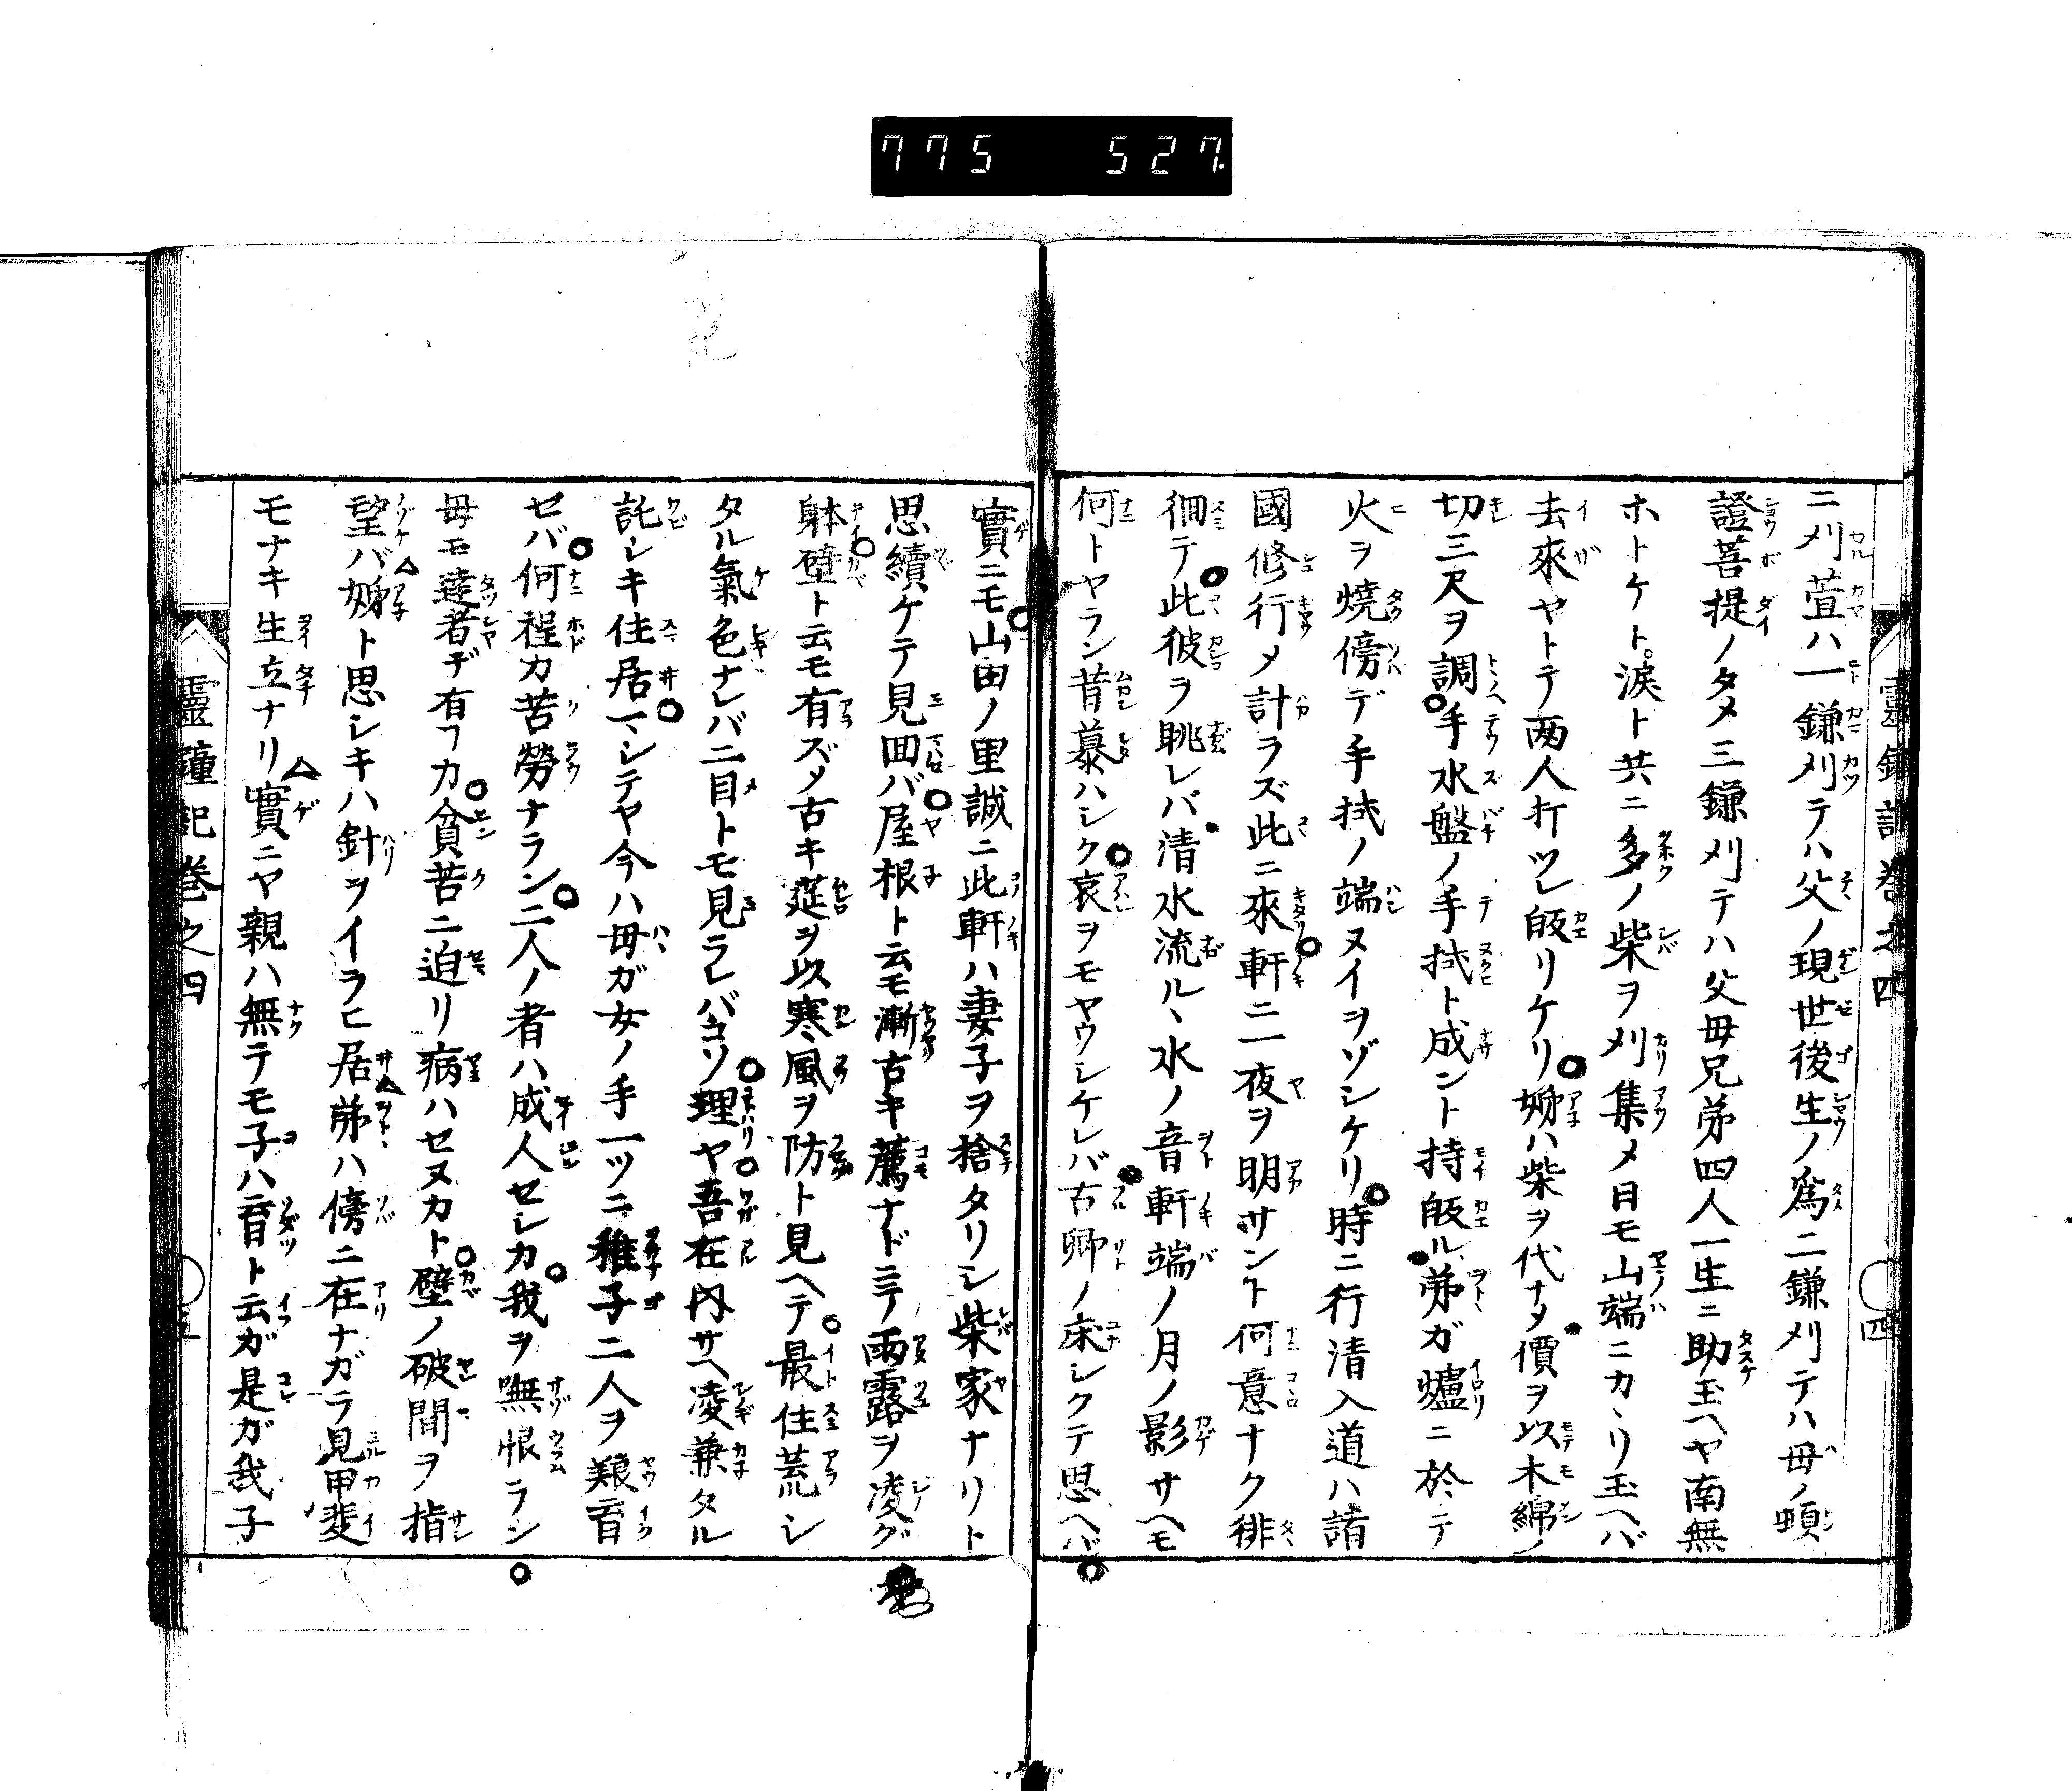 775 527
靈鐘記巻之四
四
ニ刈萱ハ一鎌刈テハ父ノ現世後生ノ爲二鎌刈テハ母ノ頓
證菩提ノタメ三鎌刈テハ父母兄弟四人一生ニ助玉ヘヤ南無
ホトケト涙ト共ニ多ノ柴ヲ刈集メ日モ山端ニカヽリ玉ヘバ
去來ヤトテ两人打ツレ皈リケリ姉ハ柴ヲ代ナメ價ヲ以木綿ノ
切三尺ヲ調手水盤ノ手拭ト成ント持皈ル弟ガ爐ニ於テ
火ヲ燒傍デ手拭ノ端ヌイヲゾシケリ時ニ行清入道ハ諸
國修行メ計ラズ此ニ來軒ニ一夜ヲ明サント何意ナク徘
徊テ此彼ヲ眺レバ清水流ルヽ水ノ音軒端ノ月ノ影サヘモ
何トヤラン昔慕ハシク哀ヲモヤウシケレバ古郷ノ床シクテ思ヘバ
實ニモ山田ノ里誠ニ此軒ハ妻子ヲ捨タリシ柴家ナリト
思續ケテ見囬バ屋根ト云モ漸古キ薦ナドニテ雨露ヲ凌グ
躰壁ト云モ有ズメ古キ莚ヲ以寒風ヲ防ト見ヘテ最住荒シ
タル氣色ナレバ二目トモ見ラレバコソ理ヤ吾在内サヘ凌兼タル
詫シキ住居マシテヤ今ハ母ガ女ノ手一ツニ稚子二人ヲ艱育
セバ何程カ苦勞ナラン二人ノ者ハ成人セシカ我ヲ嘸恨ラン
母モ達者ヂ有フカ貧苦ニ迫リ病ハセヌカト壁ノ破間ヲ指
望バ姉ト思シキハ針ヲイラヒ居弟ハ傍ニ在ナガラ見甲斐
モナキ生立ナリ實ニヤ親ハ無テモ子ハ育ト云ガ是ガ我子
靈鐘記巻之四
五